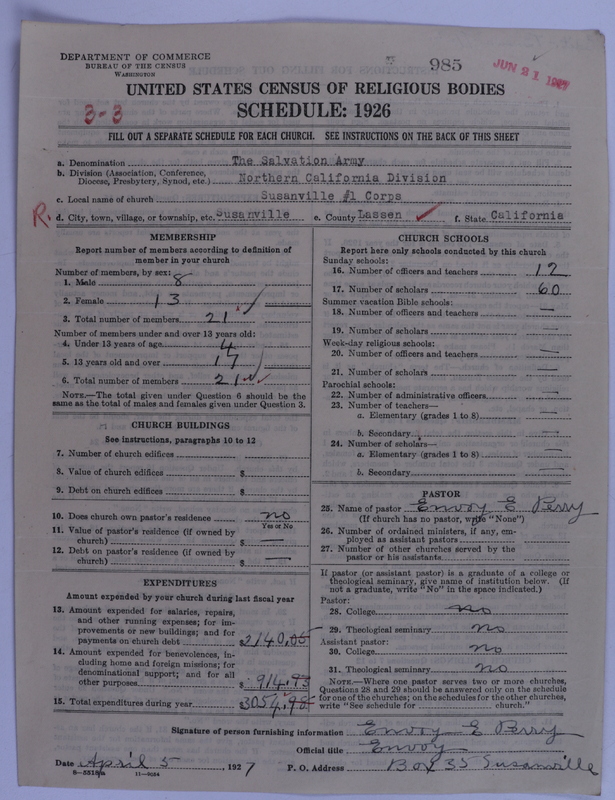 DEPARTMENT OF COMMERCE
BUREAU OF THE CENSUS
WASHINGTON
985
JUN 21 1927
UNITED STATES CENSUS OF RELIGIOUS BODIES
3-3
SCHEDULE: 1926
FILL OUT A SEPARATE SCHEDULE FOR EACH CHURCH. SEE INSTRUCTIONS ON THE BACK OF THIS SHEET
a. Denomination The Salvation Army
b. Division (Association, Conference, Diocese, Presbytery, Synod, etc.) Northern California Division
c. Local name of church Susanville #1 Corps
R. d. City, town, village, or township, etc. Susanville e. County Lassen f. State California
MEMBERSHIP
Report number of members according to definition of
member in your church
Number of members, by sex:
1. Male 8
2. Female 13
3. Total number of members 21
Number of members under and over 13 years old:
4. Under 13 years of age 4
5. 13 years old and over 17
6. Total number of members 21
NOTE.—The total given under Question 6 should be the
same as the total of males and females given under Question 3.
CHURCH BUILDINGS
See instructions, paragraphs 10 to 12
7. Number of church edifices
8. Value of church edifices $
9. Debt on church edifices $
10. Does church own pastor's residence no
Yes or No
11. Value of pastor's residence (if owned by
church) $ —
12. Debt on pastor's residence (if owned by
church) $ —
EXPENDITURES
Amount expended by your church during last fiscal year
13. Amount expended for salaries, repairs,
and other running expenses; for im-
provements or new buildings; and for
payments on church debt $2140.05
14. Amount expended for benevolences, in-
cluding home and foreign missions; for
denominational support; and for all
other purposes $914.93
15. Total expenditures during year $3054.98
CHURCH SCHOOLS
Report here only schools conducted by this church
Sunday schools:
16. Number of officers and teachers 12
17. Number of scholars 60
Summer vacation Bible schools:
18. Number of officers and teachers —
19. Number of scholars —
Week-day religious schools:
20. Number of officers and teachers —
21. Number of scholars —
Parochial schools:
22. Number of administrative officers —
23. Number of teachers—
a. Elementary (grades 1 to 8) —
b. Secondary —
24. Number of scholars—
a. Elementary (grades 1 to 8) —
b. Secondary —
PASTOR
25. Name of pastor Envoy E Perry
(If church has no pastor, write "None")
26. Number of ordained ministers, if any, em-
ployed as assistant pastors
27. Number of other churches served by the
pastor or his assistants
If pastor (or assistant pastor) is a graduate of a college or
theological seminary, give name of institution below. (If
not a graduate, write "No" in the space indicated.)
Pastor:
28. College no
29. Theological seminary no
Assistant pastor:
30. College no
31. Theological seminary no
NOTE.—Where one pastor serves two or more churches,
Questions 28 and 29 should be answered only on the schedule
for one of the churches; on the schedules for the other churches,
write "See schedule for church."
Signature of person furnishing information Envoy E Perry
Official title Envoy
Date April 5, 1927 P. O. Address Box 35 Susanville
8—5518a 11—9024